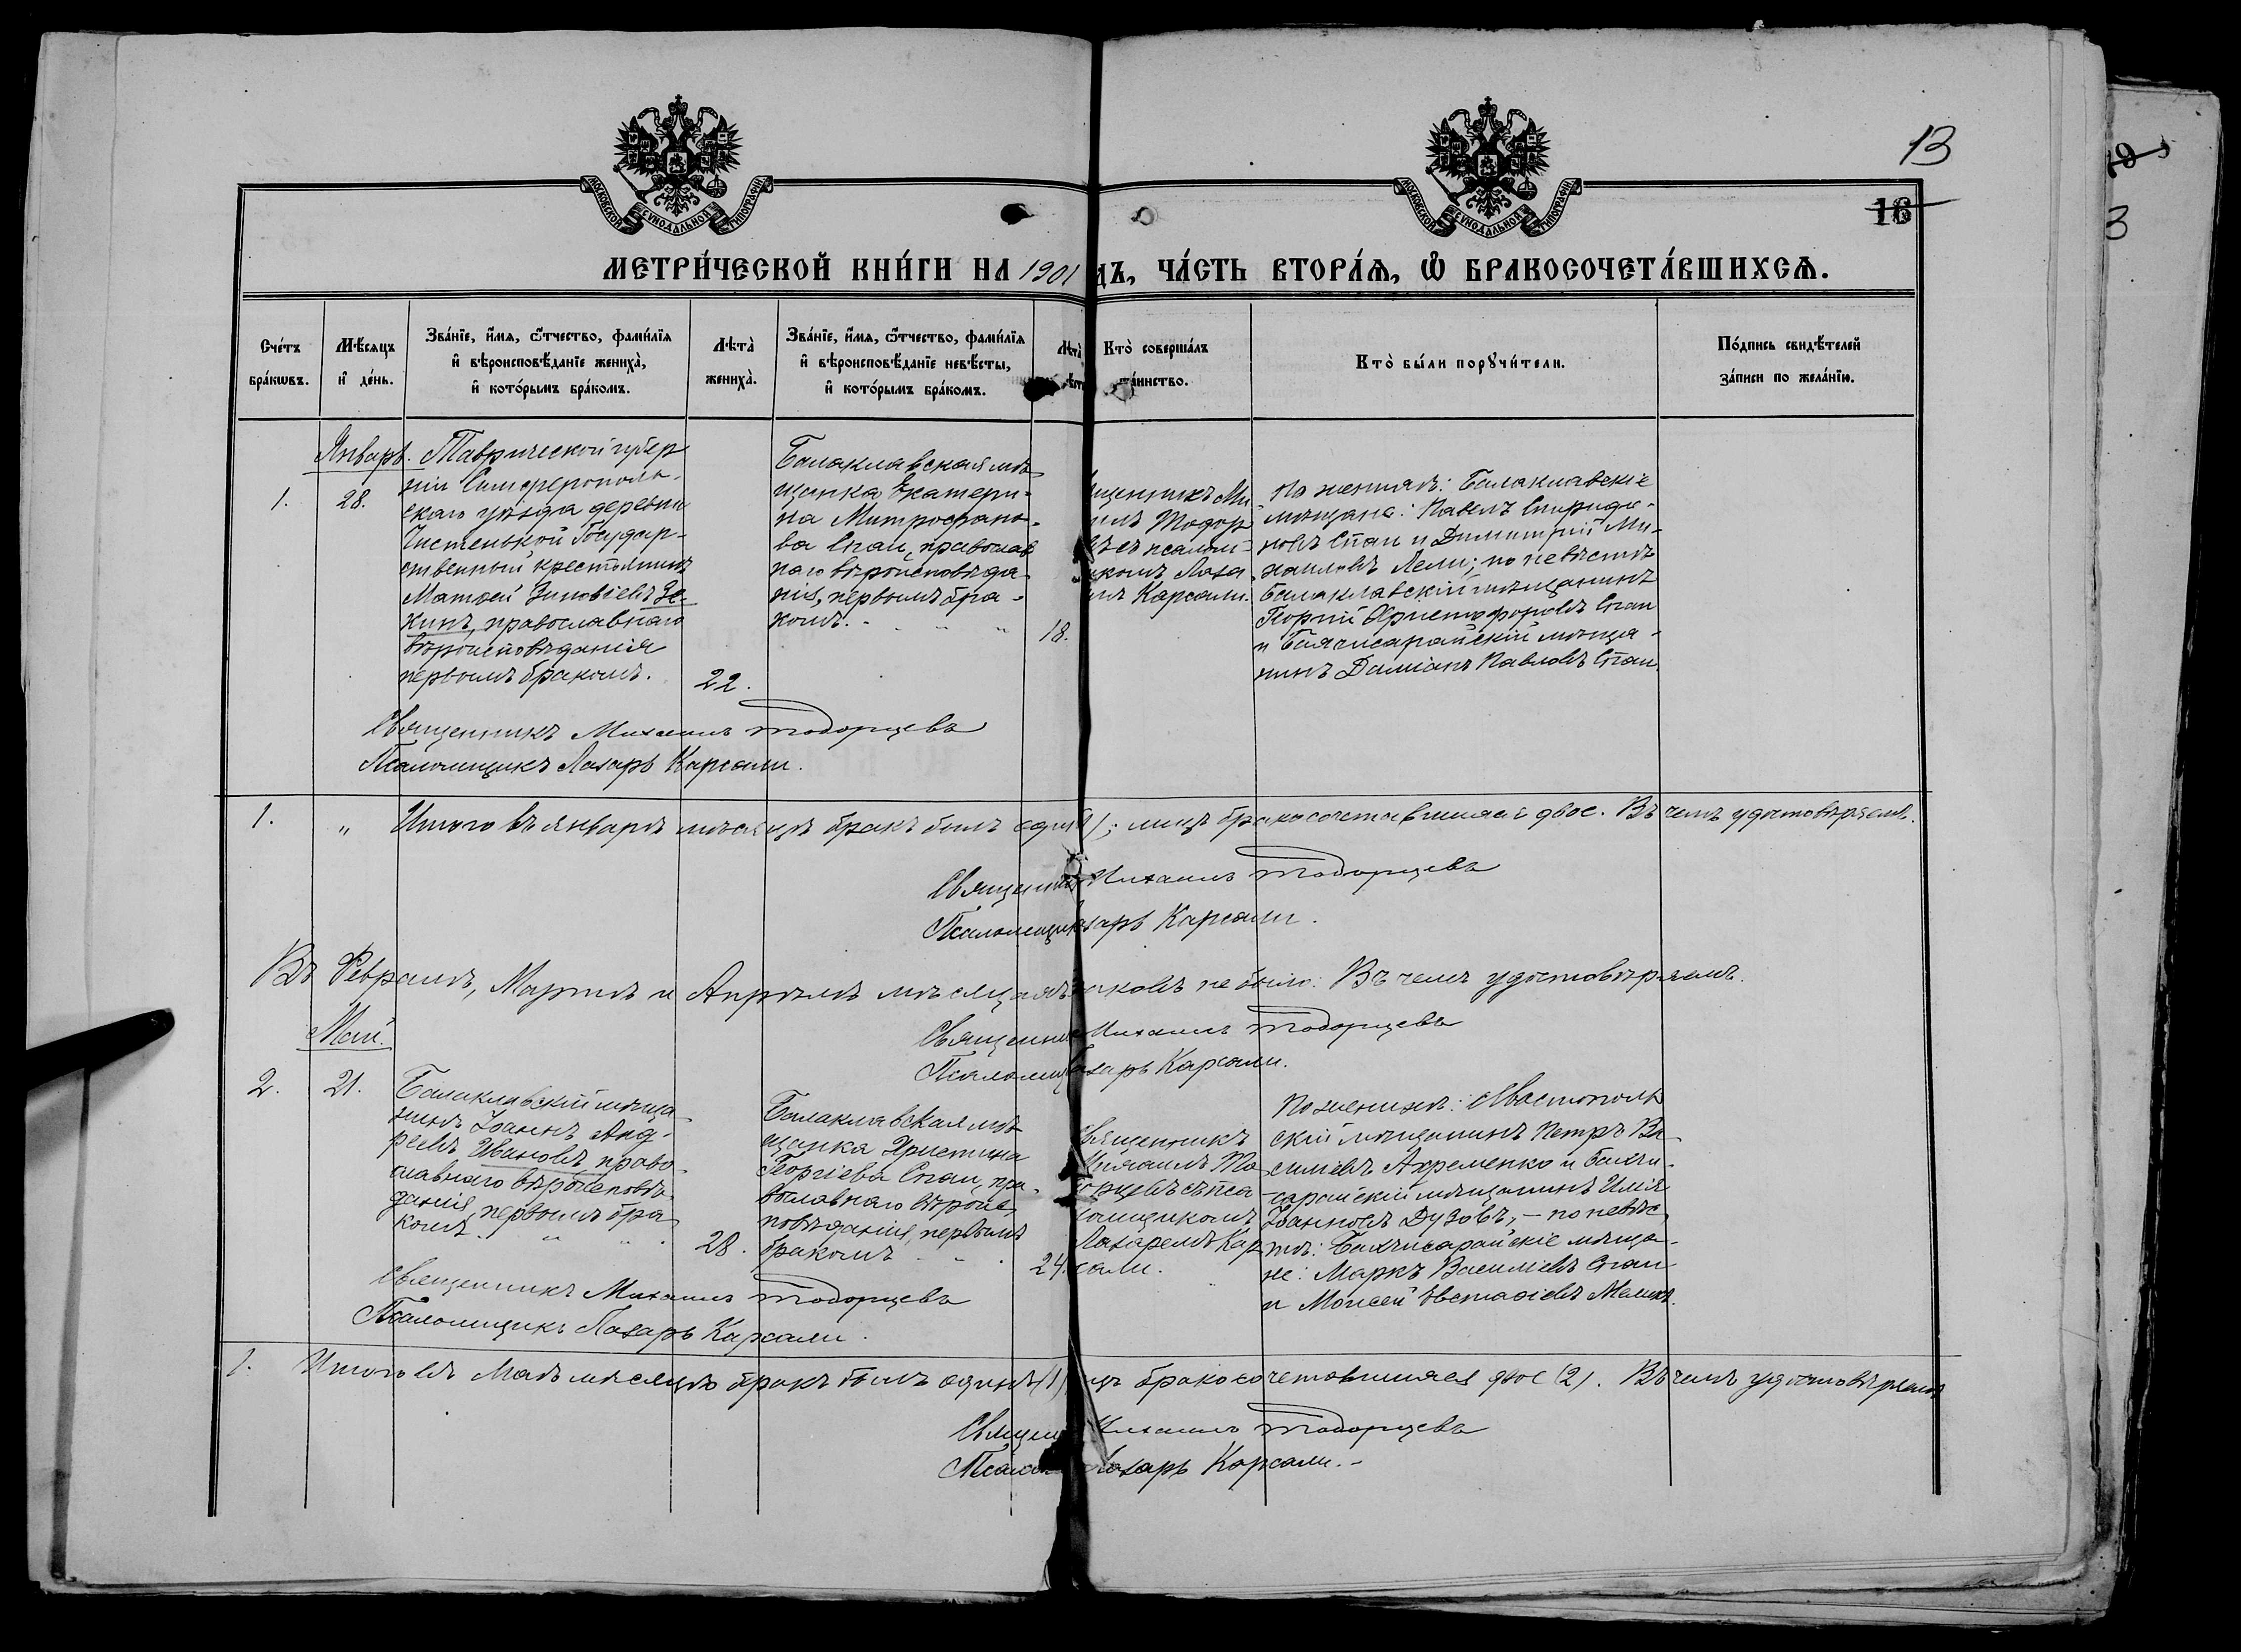 13
16
3
МОСКОВСКОЙ СѴНОДАЛЬНОЙ ТИПОГРАФІИ.
МОСКОВСКОЙ СѴНОДАЛЬНОЙ ТИПОГРАФІИ.
МЕТРИ́ЧЕСКОЙ КНИ́ГИ НА 1901 ДЪ, ЧА́СТЬ ВТОРА́Ѧ, Ѽ БРАКОСОЧЕТА́ВШИХСѦ.
Сче́тъ
бра́кѡвъ.
Мѣ́сяцъ
и҆ де́нь.
Зва́нїе, и҆́мѧ, ѻ҆́тчество, фами́лїѧ
и҆ вѣроисповѣ́данїе жениха̀,
и҆ кото́рымъ бра́комъ.
Лѣта̀
жениха̀.
Зва́нїе, и҆́мѧ, ѻ҆́тчество, фами́лїѧ
и҆ вѣроисповѣ́данїе невѣ́сты,
и҆ кото́рымъ бра́комъ.
Лѣта̀
Кто̀ соверша́лъ
та́инство.
Кто̀ бы́ли порꙋчи́тели.
По́дпись свидѣ́телей
за́писи по жела́нїю.
Январь.
1.
28.
Таврической губер
ніи Симферополь-
скаго уѣзда деревни
Чистенькой Государ-
ственный крестьянинъ
Матѳей Зиновіевъ Зе-
кинъ, православнаго
вѣроисповѣданія
первымъ бракомъ.
22.
Балаклавская мѣ
щанка Екатери-
на Митрофано-
ва Спаи, православ
наго вѣроисповѣда
нія, первымъ бра-
комъ.
18.
щенникъ Ми
илъ Тодор
въ съ псалом-
комъ Лаза
мъ Карсали.
По женихѣ: Балаклавскіе
мѣщане: Павелъ Спиридо-
новъ Спаи и Димитрій Ми-
хаиловъ Лели; по невѣстѣ
Балаклавскій мѣщанинъ
Георгій Христофоровъ Спаи
и Бахчисарайскій мѣща-
нинъ Даміанъ Павловъ Спаи.
Священникъ Михаилъ Тодорцевъ
Псаломщикъ Лазарь Карсали.
1. " Итого въ январѣ мѣсяцѣ бракъ былъ один 1); лицъ бракосочетавшихся двое. Въ чемъ удостовѣряемъ.
Священник Михаилъ Тодорцевъ
Псаломщик зарь Карсали.
Въ Февралѣ, Мартѣ и Апрѣлѣ мѣсяцахъ раковъ не было. Въ чемъ удостовѣряемъ.
Священни Михаилъ Тодорцевъ
Псаломщ азарь Карсали.
Май.
2.
21.
Балаклавскій мѣща
нинъ Іоаннъ Анд-
реевъ Ивановъ право
славнаго вѣроисповѣ
данія, первымъ бра
комъ.
28.
Балаклавская мѣ
щанка Христина
Георгіева Спаи, пра-
вославнаго вѣроис
повѣданія, первымъ
бракомъ
24.
Священникъ
Михаилъ То
орцевъ съ пса
омщикомъ
Лазаремъ Кар
сали.
По женихѣ: Севастополь
скій мѣщанинъ Петръ Ва
силіевъ Ахременко и Бахчи-
сарайскій мѣщанинъ Илія
Іоанновъ Дузовъ, - по невѣс
тѣ: Бахчисарайскіе мѣща-
не: Маркъ Василіевъ Спаи
и Моисей Евстафіевъ Меликъ.
Священникъ Михаилъ Тодорцевъ
Псаломщикъ Лазарь Карсали.
1. Итого въ Маѣ мѣсяцѣ бракъ былъ одинъ (1), цъ бракосочетавшихся двое (2). Въ чемъ удостовѣряемъ
Священ Михаилъ Тодорцевъ
Псалом Лазарь Карсали.-